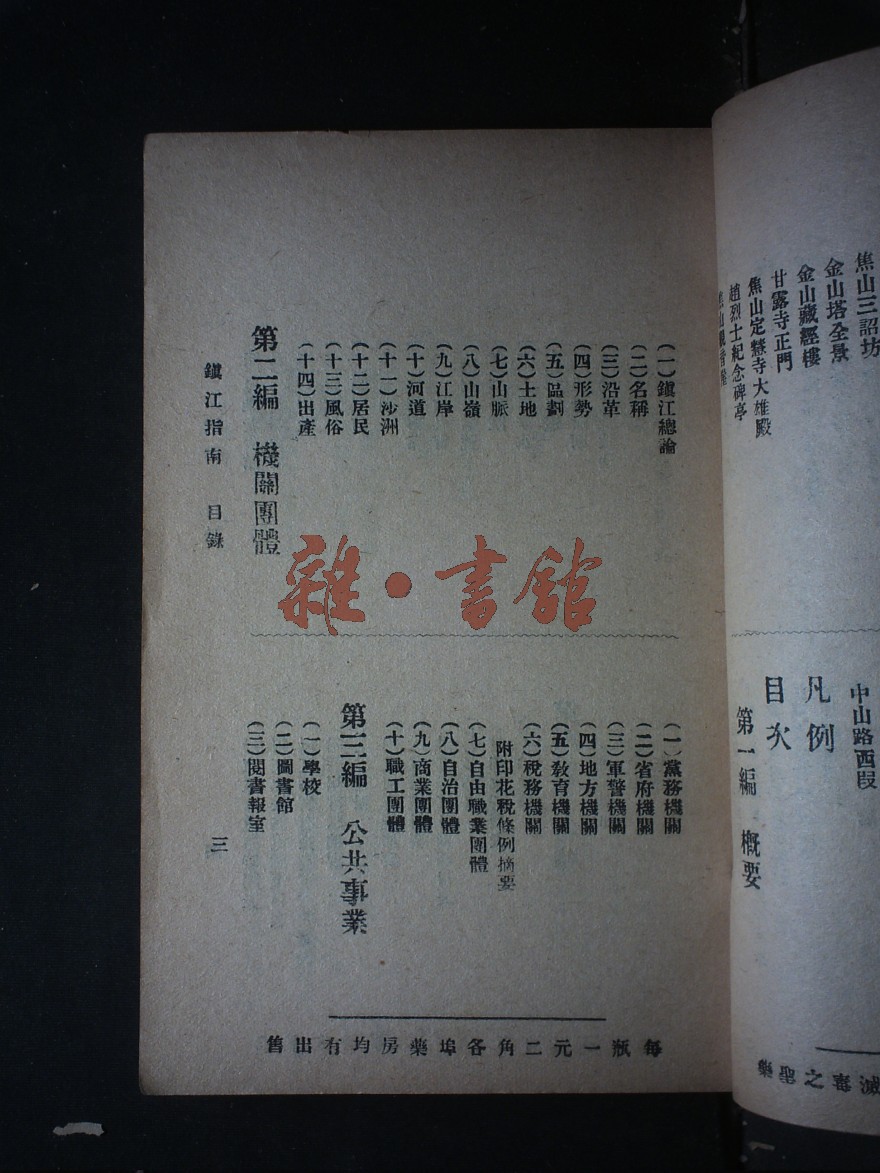 焦山三詔坊
金山塔全景
金山藏經樓
甘露寺正門
焦山定慧寺大雄殿
趙烈士紀念碑亭
中山路西段
凡例
目次
第一編　概要
滅毒之聖藥
（一）鎭江總論
（二）名稱
（三）沿革
（四）形勢
（五）區劃
（六）土地
（七）山脈
（八）山嶺
（九）江岸
（十）河道
（十一）沙洲
（十二）居民
（十三）風俗
（十四）出產
第二編　機關團體
（一）黨務機關
（二）省府機關
（三）軍警機關
（四）地方機關
（五）敎育機關
（六）稅務機關
附印花稅條例摘要
（七）自由職業團體
（八）自治團體
（九）商業團體
（十）職工團體
第三編　公共事業
（一）學校
（二）圖書館
（三）閱書報室
鎭江指南　目錄
三
每瓶一元二角各埠藥房均有出售
雜·書館